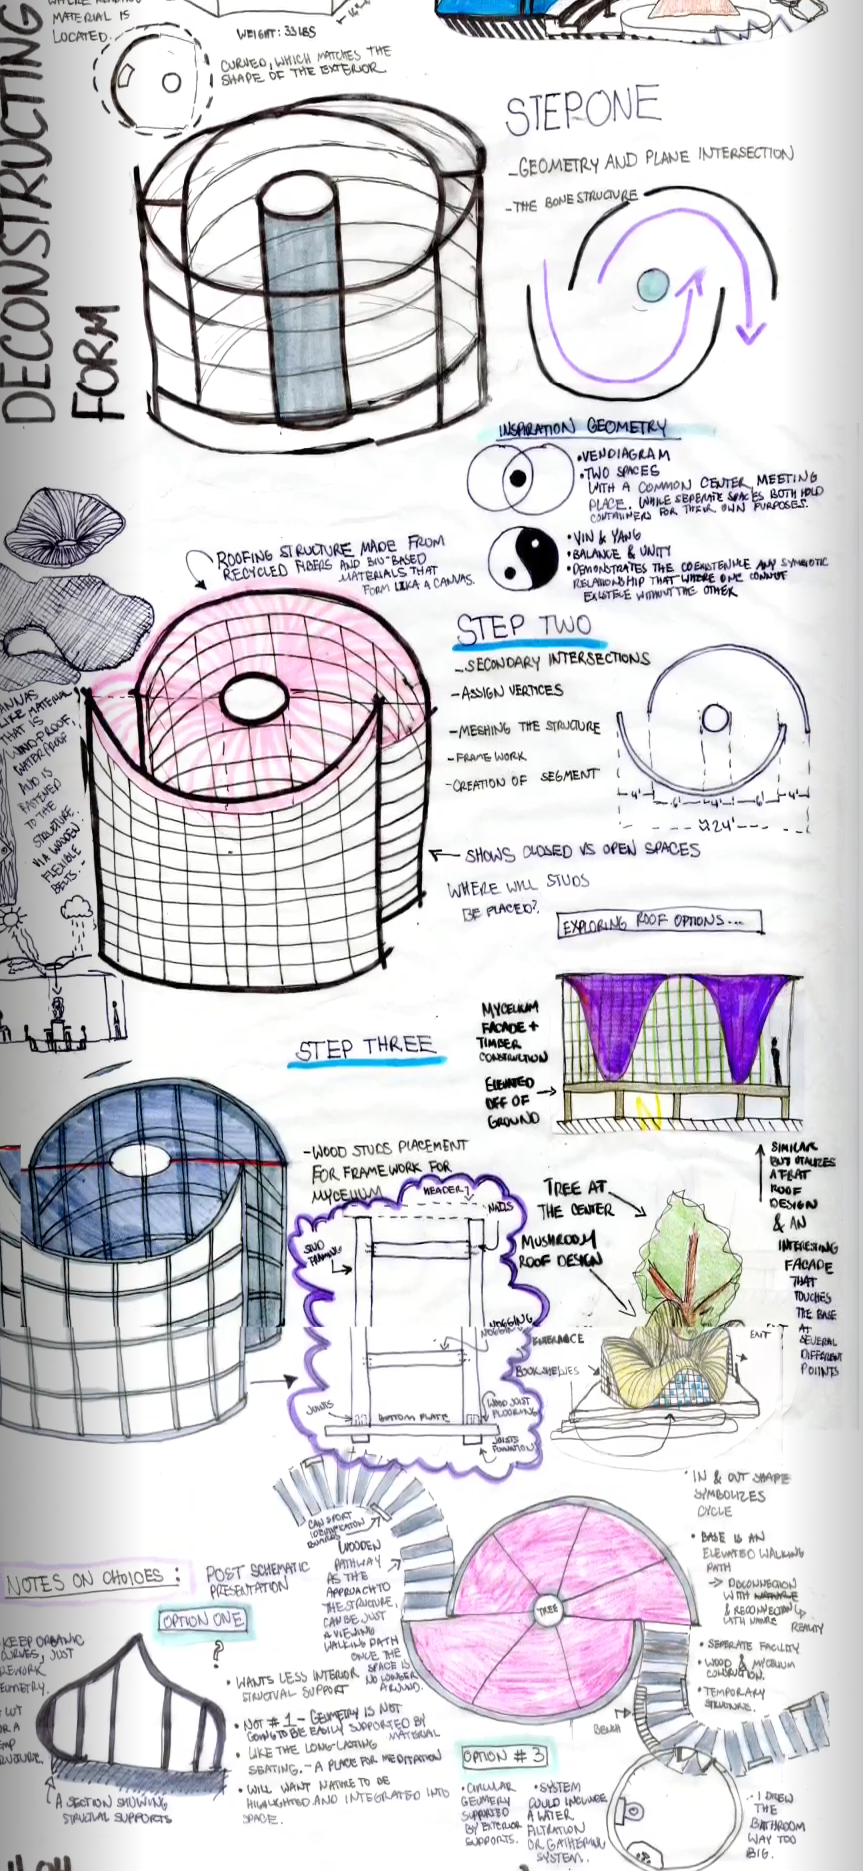 MATERIAL IS
LOCATED.
WEIGHT: 33 LBS
CURVED, WHICH MATCHES THE
SHAPE OF THE EXTERIOR
DECONSTRUCTING
FORM
STEP ONE
-GEOMETRY AND PLANE INTERSECTION
-THE BONE STRUCTURE
INSPIRATION GEOMETRY
•VENDIAGRAM
•TWO SPACES
WITH A COMMON CENTER, MEETING
PLACE. WHILE SEPERATE SPACES BOTH HOLD
CONTAINERS FOR THEIR OWN PURPOSES.
•YIN & YANG
•BALANCE & UNITY
•DEMONSTRATES THE COEXISTENCE ANY SYMBIOTIC
RELATIONSHIP THAT WHERE ONE CONNOT
WITHOUT THE OTHER
ROOFING STRUCTURE MADE FROM
RECYCLED FIBERS AND BIO-BASED
MATERIALS THAT
FORM LIKE A CANVAS.
STEP TWO
-SECONDARY INTERSECTIONS
-ASSIGN VERTICES
-MESHING THE STRUCTURE
-FRAME WORK
-CREATION OF SEGMENT
4'
6'
6'
4'
24'
LIKE MATERIAL
THAT IS
WIND-PROOF,
WATERPROOF
AND IS
FASTENED
TO THE
STRUCTURE
VIA WOODEN
FLEXIBLE
BELTS.
SHOWS CLOSED VS OPEN SPACES
WHERE WILL STUDS
BE PLACED?
EXPLORING ROOF OPTIONS...
MYCELIUM
FACADE +
TIMBER
CONSTRUCTION
ELEVATED
OFF OF
GROUND
STEP THREE
-WOOD STUDS PLACEMENT
FOR FRAMEWORK FOR
MYCELIUM
HEADER
NAILS
STUD
FRAMING
NOGGING
NOGGING
JOISTS
BOTTOM PLATE
WOOD JOIST
FLOORING
JOISTS
TREE AT
THE CENTER
MUSHROOM
ROOF DESIGN
SIMILAR
BUT UTALIZES
A FLAT
ROOF
DESIGN
& AN
INTERESTING
FACADE
THAT
TOUCHES
THE BASE
AT
SEVERAL
DIFFERENT
POINTS
ENTERANCE
EXIT
BOOKSHELVES
NOTES ON CHOICES:
POST SCHEMATIC
PRESENTATION
OPTION ONE
?
KEEP ORGANIC
CURVES, JUST
REWORK
GEOMETRY.
A SECTION SHOWING
STRUCTUAL SUPPORTS
• WANTS LESS INTERIOR
STRUCTUAL SUPPORT
• NOT #1 - GEOMETRY IS NOT
GOING TO BE EASILY SUPPORTED BY
MATERIAL
• LIKE THE LONG-LASTING
SEATING. - A PLACE FOR MEDITATION
• WILL WANT NATURE TO BE
HIGHLIGHTED AND INTEGRATED INTO
SPACE.
WOODEN
PATHWAY
AS THE
APPROACH TO
THE STRUCTURE,
CAN BE JUST
A VIEWING
WALKING PATH
ONCE THE
SPACE IS
NO LONGER
AROUND.
TREE
• IN & OUT SHAPE
SYMBOLIZES
CYCLE
• BASE IS AN
ELEVATED WALKING
PATH
→ DISCONNECTION
WITH NATURE
& RECONNECTION
WITH NATURE
REALITY
• SEPERATE FACILITY
• WOOD & MYCELIUM
CONSTRUCTION.
• TEMPORARY
STRUCTURE.
BENCH
OPTION #3
•CIRCULAR
GEOMERY
SUPPORTED
BY EXTERIOR
SUPPORTS.
•SYSTEM
COULD INCLUDE
A WATER
FILTRATION
OR GATHERING
SYSTEM.
• I DREW
THE
BATHROOM
WAY TOO
BIG.